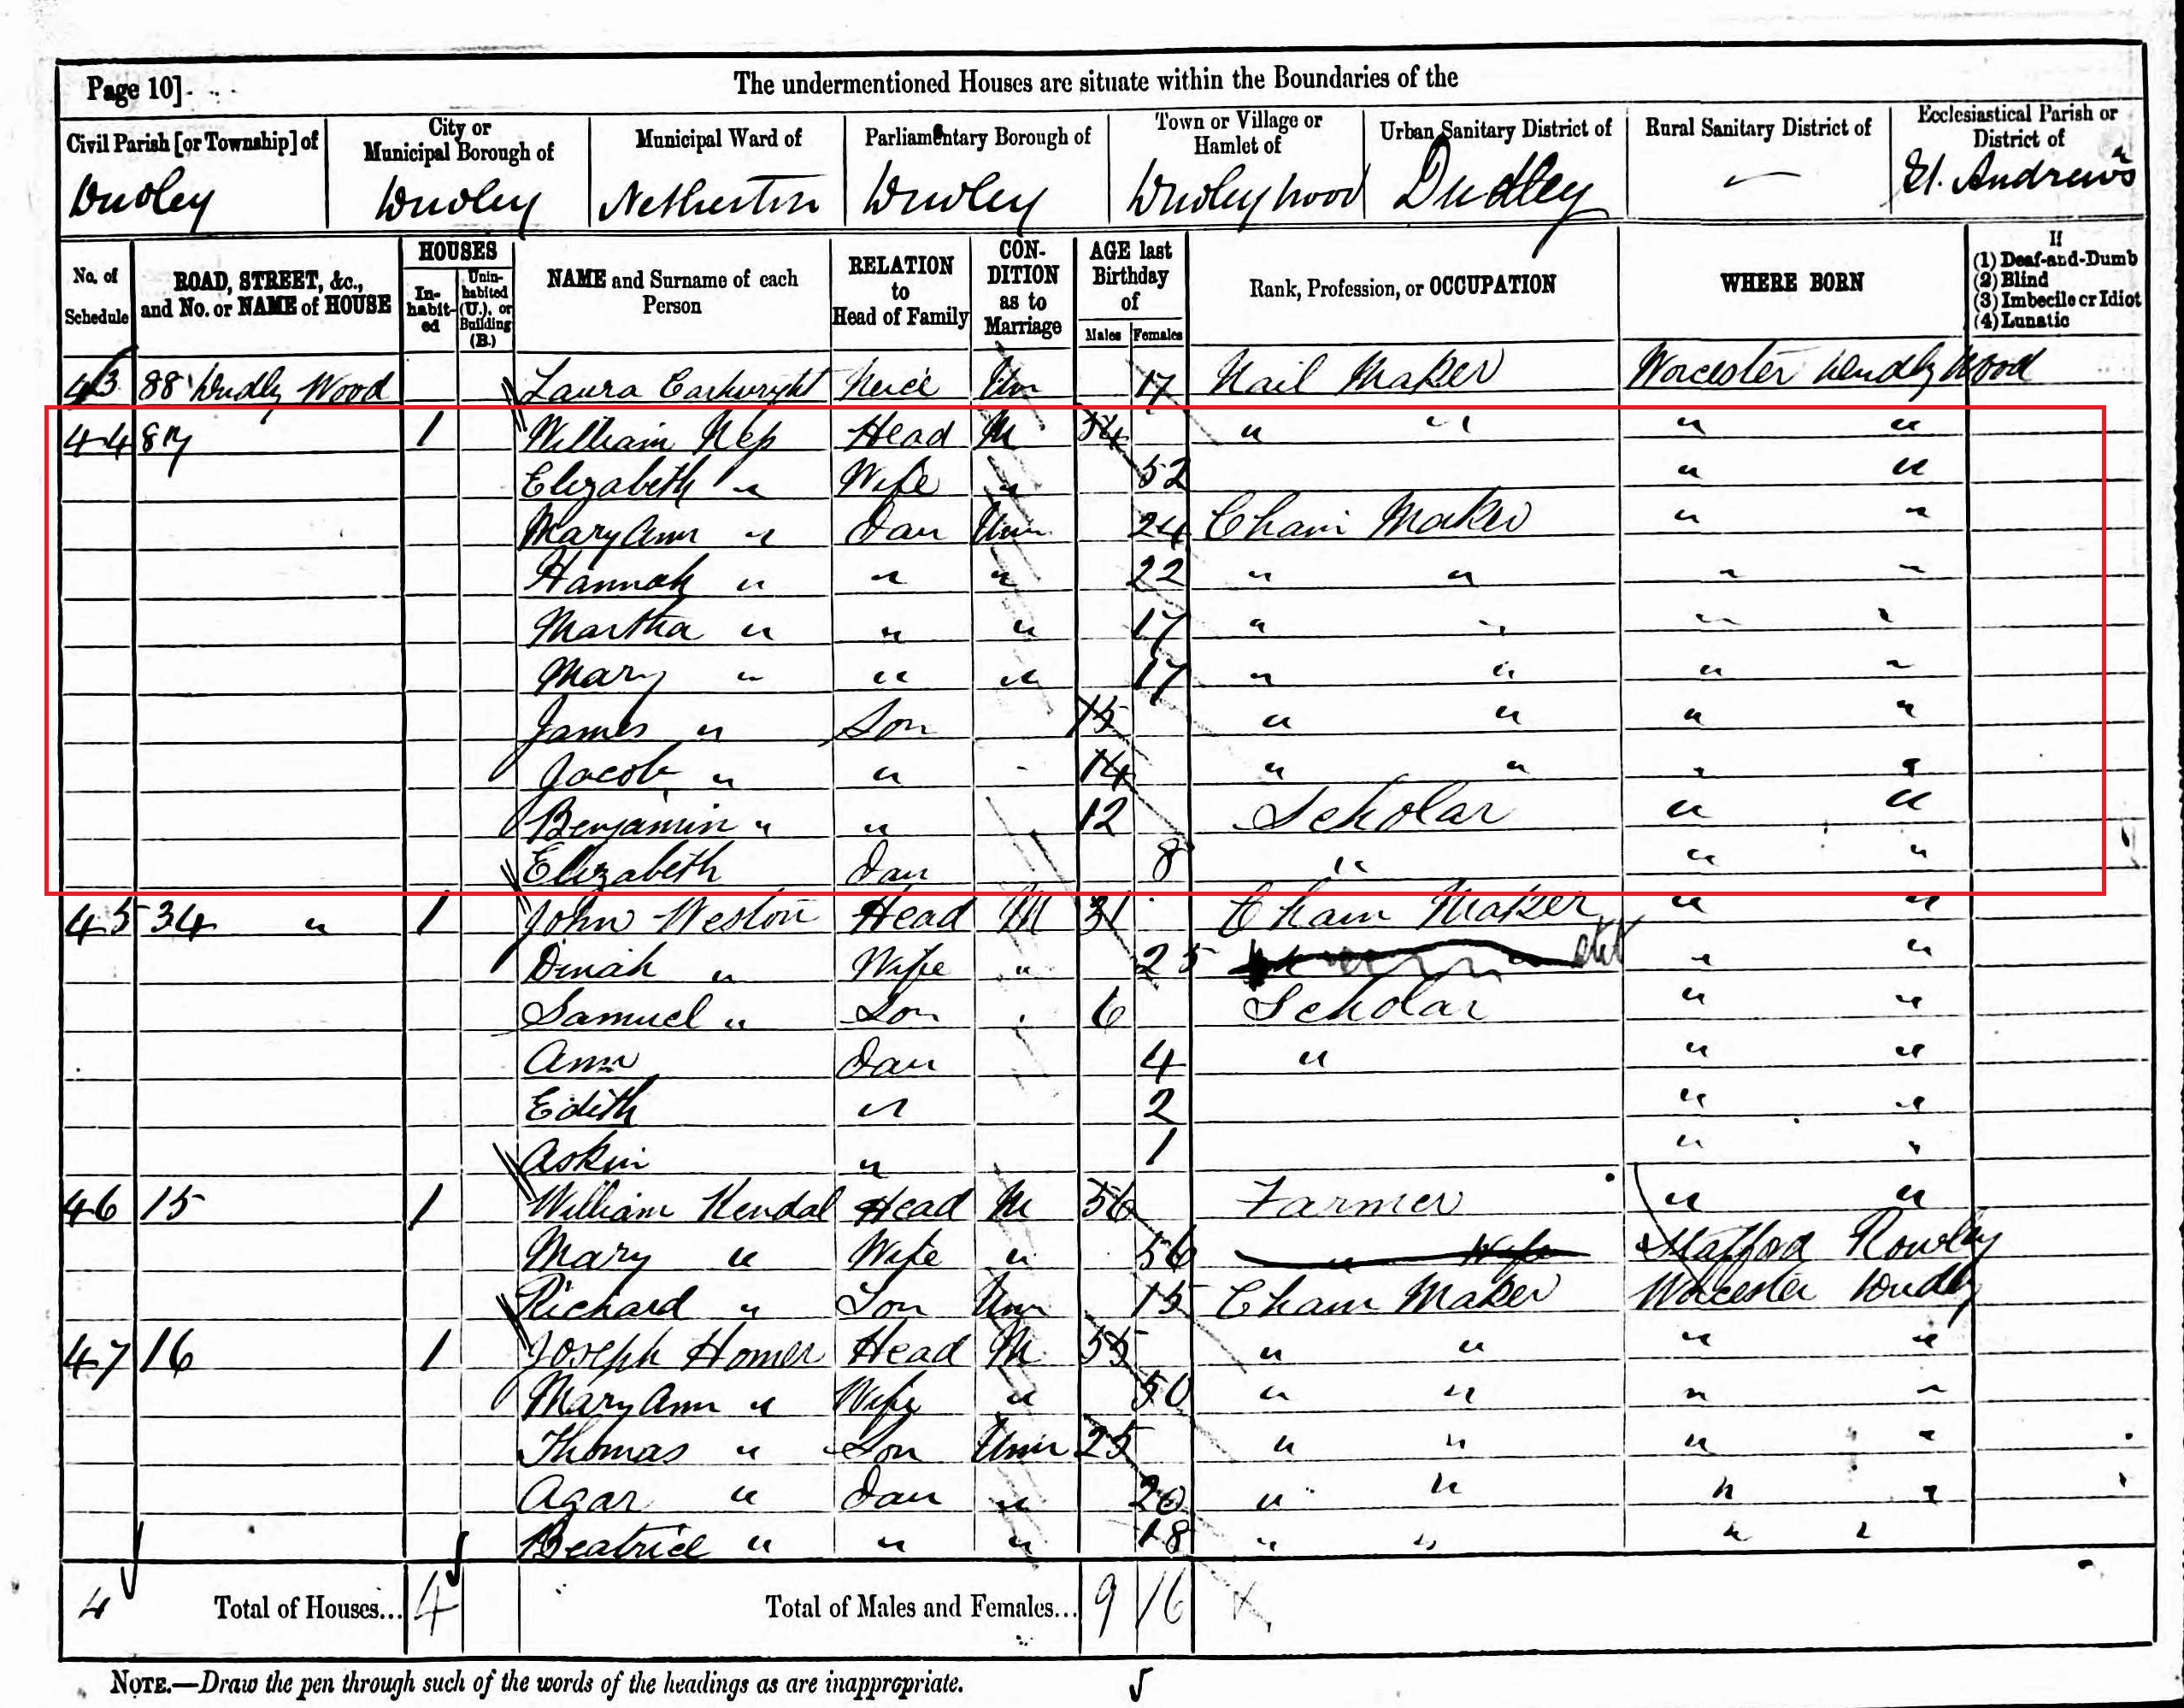 Page 10]
The undermentioned Houses are situate within the Boundaries of the
Civil Parish [or Township] of
City or Municipal Borough of
Municipal Ward of
Parliamentary Borough of
Town or Village or Hamlet of
Urban Sanitary District of
Rural Sanitary District of
Ecclesiastical Parish or District of
Dudley Dudley Netherton Dudley Dudley Wood Dudley — St. Andrews
No. of Schedule
ROAD, STREET, &c., and No. or NAME of HOUSE
HOUSES
In-habit-ed
Unin-habited (U.), or Building (B.)
NAME and Surname of each Person
RELATION to Head of Family
CON-DITION as to Marriage
AGE last Birthday of
Males Females
Rank, Profession, or OCCUPATION
WHERE BORN
If
(1) Deaf-and-Dumb
(2) Blind
(3) Imbecile or Idiot
(4) Lunatic
43 88 Dudly Wood Laura Cartwright Neice Unm 17 Nail Maker Worcester Dudly Wood
44 87 1 William Head M 54 " " " "
Elizabeth " Wife " 52 " "
Mary Ann " Dau Unm 24 Chain Maker " "
Hannah " " " 22 " " " "
Martha " " " 17 " " " "
Mary " " " 17 " " " "
James " Son 15 " " " "
Jacob " " 14 " " " "
Benjamin " " 12 Scholar " "
Elizabeth Dau 8 " " "
45 34 " 1 John Weston Head M 31 Chain Maker " "
Dinah " Wife " 25 " "
Samuel " Son 6 Scholar " "
Ann Dau 4 " " "
Edith " 2 " "
Askin " 1 " "
46 15 1 William Kendal Head M 56 Farmer " "
Mary " Wife " 56 " Wife Stafford Rowley
Richard " Son Unm 15 Chain Maker Worcester Dudly
47 16 1 Joseph Homer Head M 55 " " " "
Mary Ann " Wife " 50 " " " "
Thomas " Son Unm 25 " " " "
Agar " Dau " 20 " " " "
Beatrice " " " 18 " " " "
4 Total of Houses... 4 Total of Males and Females... 9 16
NOTE.—Draw the pen through such of the words of the headings as are inappropriate.